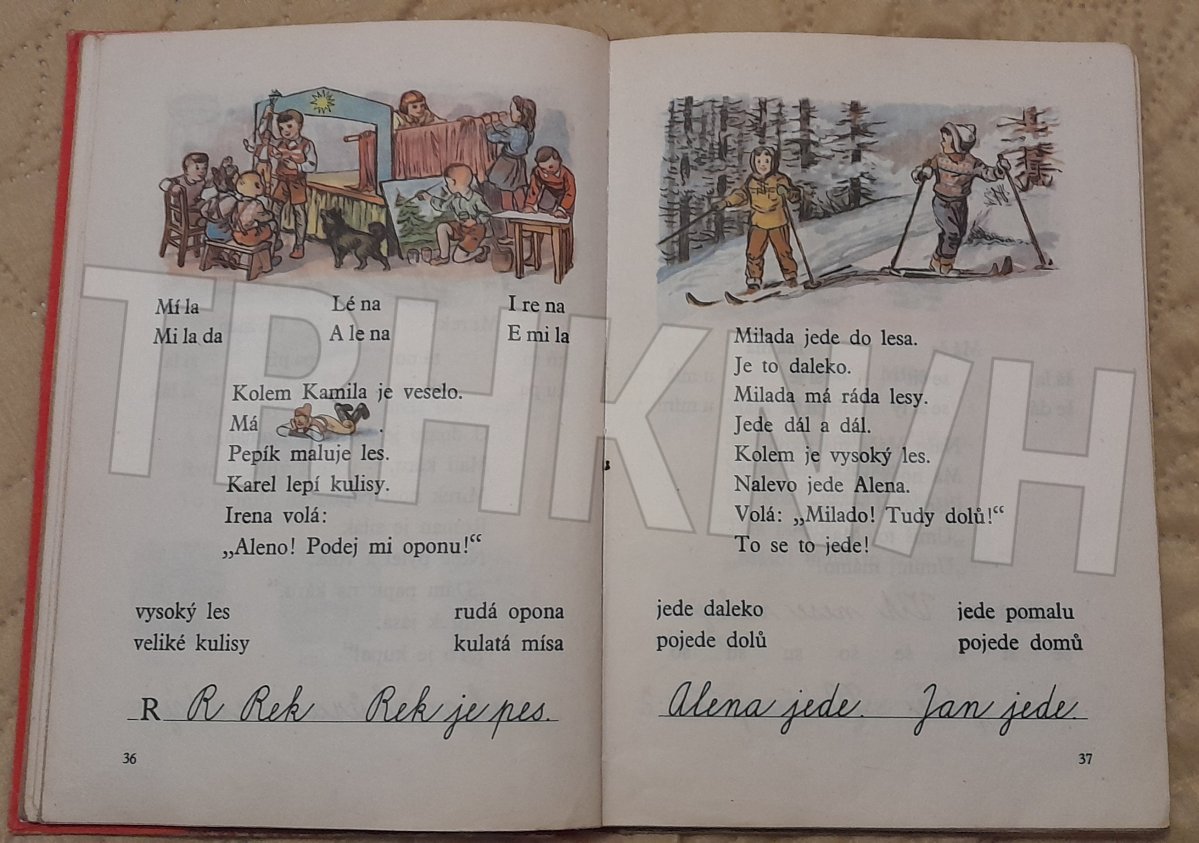 Mí la Lé na I re na
Mi la da A le na E mi la
Kolem Kamila je veselo.
Má .
Pepík maluje les.
Karel lepí kulisy.
Irena volá:
„Aleno! Podej mi oponu!“
vysoký les rudá opona
veliké kulisy kulatá mísa
R R Rek Rek je pes.
36
Milada jede do lesa.
Je to daleko.
Milada má ráda lesy.
Jede dál a dál.
Kolem je vysoký les.
Nalevo jede Alena.
Volá: „Milado! Tudy dolů!“
To se to jede!
jede daleko jede pomalu
pojede dolů pojede domů
Alena jede. Jan jede.
37
TRHKNIH